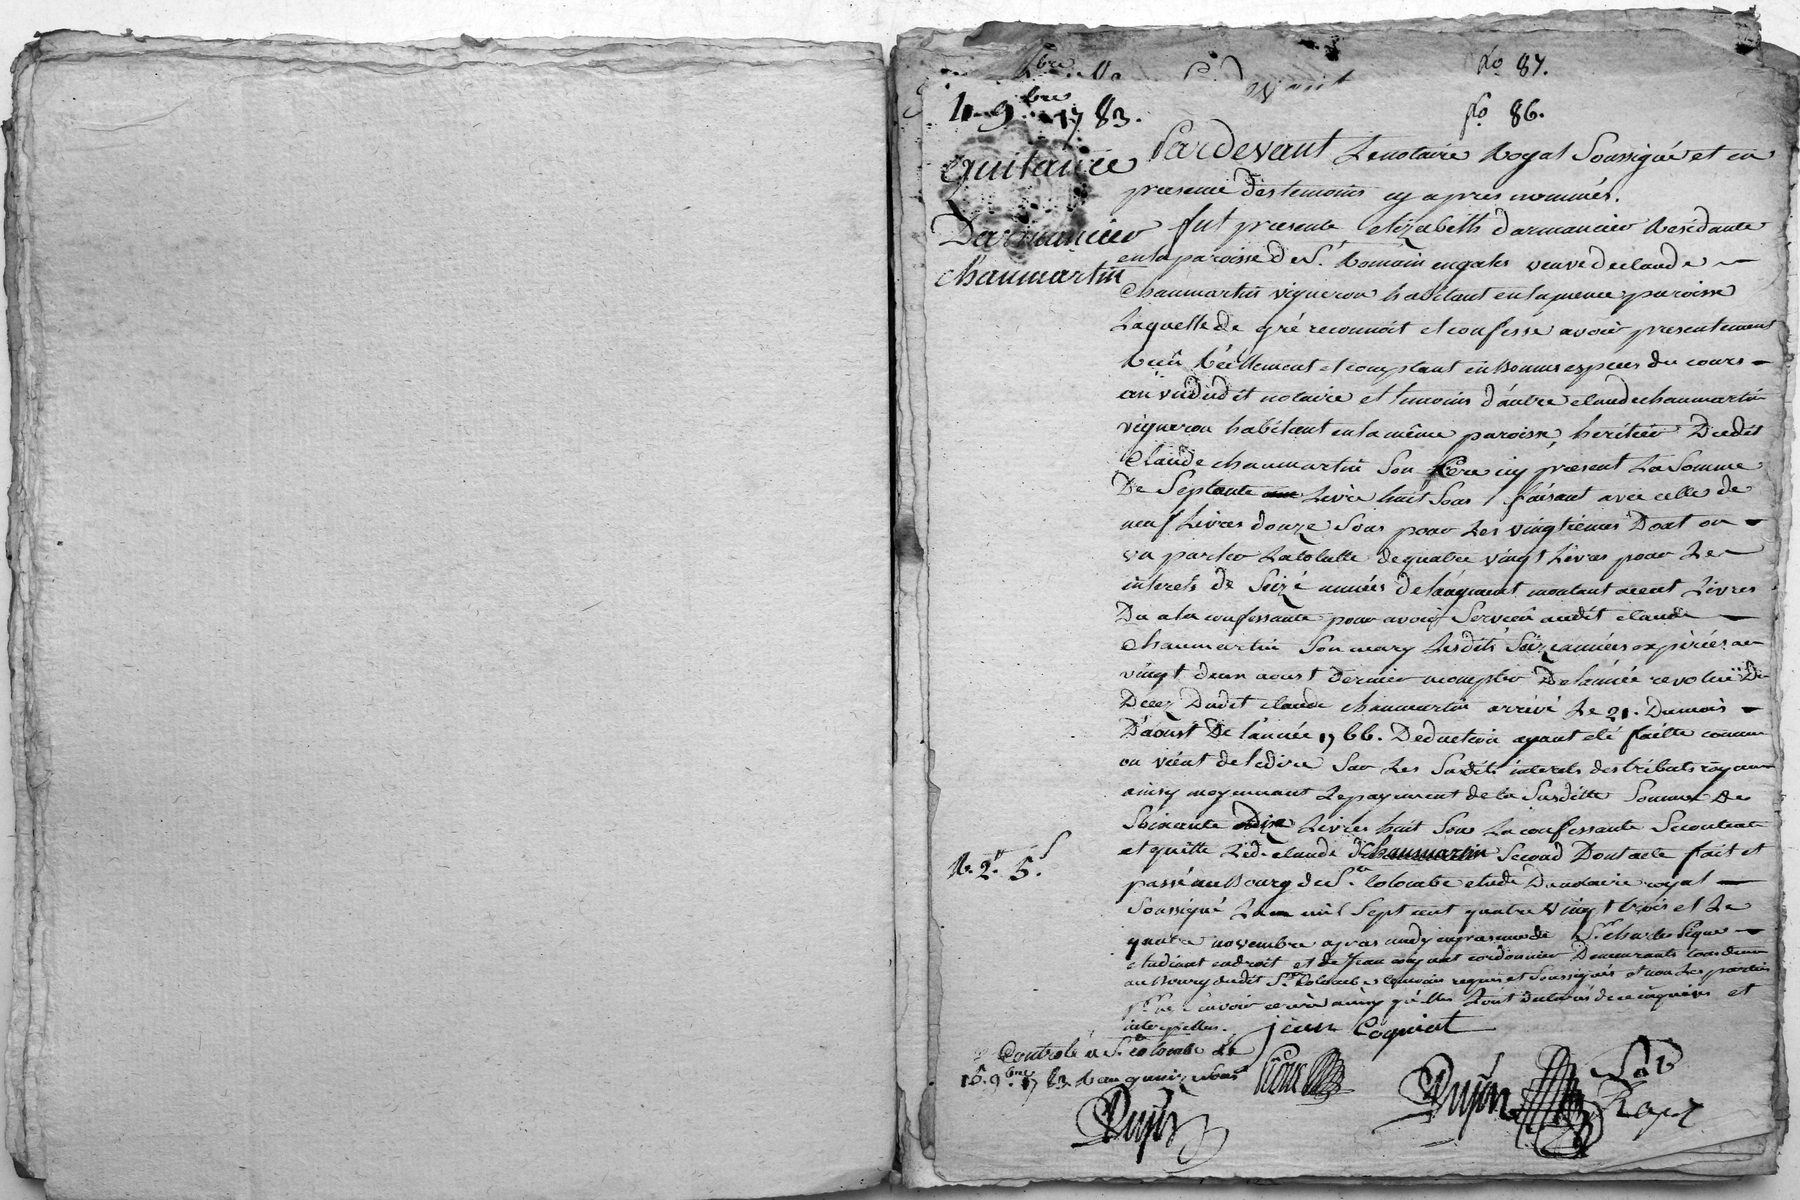 No 87.
4. 9bre 1783.
fo 86.
quitance
Darmancier
chaumartin
Pardevant Le notaire Royal Soussigné et en
presence des temoins cy apres nommés.
fut presente elizabeth darmancier Residante
en la paroisse de St. Romain en gales veuve de claude
chaumartin vigneron habitant en la meme paroisse
Laquelle de gré reconnoit et confesse avoir presentement
Recû Réellement et comptant en Bonnes especes du cours
au vû dudit notaire et temoins d'autre claude chaumartin
vigneron habitant en la même paroisse, heritier Dudit
Claude chaumartin Son Pere icy present La Somme
De Septante Livre huit Sous faisant avec celle de
neuf Livres douze Sous pour Les vingtiemes Dont on
va parler La totalle de quatre vingt Livres pour Les
interets de Seize années de l'augment montant a cent Livres
Du a la confessante pour avoir Survecu audit claude
Chaumartin Son mary Lesdits Seize années expirées au
vingt d'un aoust Dernier a compter De l'année revolue Du
Decez Dudit claude chaumartin arrivé Le 21. Du mois
D'aoust De l'année 1766. Deduction ayant eté faitte comme
on vient de le dire Sur Les Susdits interets des tributs royaux
ainsy moyennant Le payement de la Susditte Somme De
Soixante Dix Livres huit Sous La confessante Se contente
et quitte Led. claude chaumartin Second Dont acte fait et
passé au Bourg de Ste. Colombe etude Du notaire royal
Soussigné L'an mil Sept cent quatre vingt trois et Le
quatre novembre apres midy en presence de Sr. Charles Pique
etudiant en droit et de Jean coignat cordonnier Demeurants tous deux
au Bourg dudit Ste. Colombe temoins requis et Soussignés et non Les parties
pour ne Sçavoir ecrire ainsy qu'elles L'ont declaré de ce enquises et
interpellées.
R. 2# 5s.
jean Cogniat
Controlé a Ste. Colombe Le
15. 9bre 1783. Reçu quinze Sous